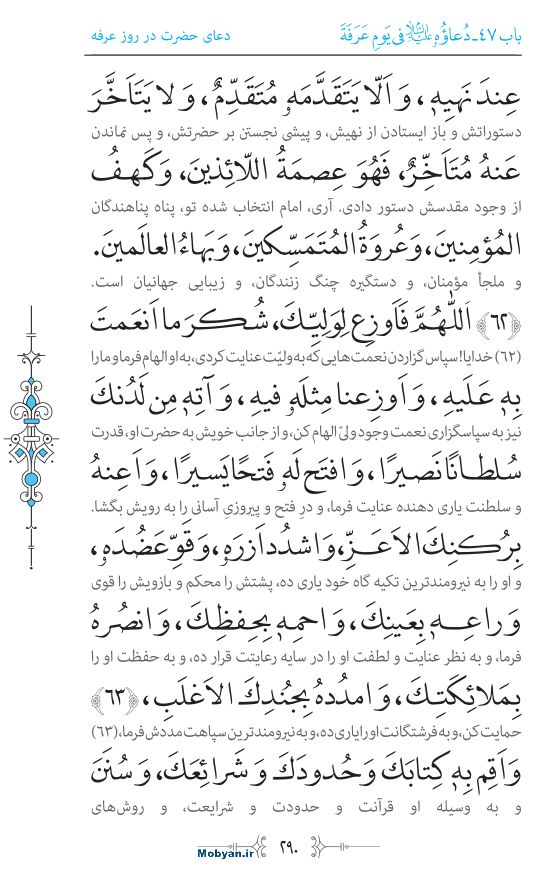 باب ۴۷ـ دُعاؤُهُ عَلَیْهِ السَّلام فی یَومِ عَرَفَةَ
دعای حضرت در روز عرفه
عِندَ نَهیِهِ، وَ اَلّا یَتَقَدَّمَهُ مُتَقَدِّمٌ، وَ لا یَتَاَخَّرَ
دستوراتش و باز ایستادن از نهیش، و پیشی نجستن بر حضرتش، و پس نماندن
عَنهُ مُتَاَخِّرٌ، فَهُوَ عِصمَةُ اللّائِذینَ، وَ کَهفُ
از وجود مقدسش دستور دادی. آری، امام انتخاب شده تو، پناه پناهندگان
المُؤمِنینَ، وَ عُروَةُ المُتَمَسِّکینَ، وَ بَهاءُ العالَمینَ.
و ملجأ مؤمنان، و دستگیره چنگ زنندگان، و زیبایی جهانیان است.
﴿۶۲﴾ اَللّٰهُمَّ فَاَوزِع لِوَلِیِّكَ، شُکرَ ما اَنعَمتَ
(۶۲) خدایا! سپاس گزاردن نعمت‌هایی که به ولیّت عنایت کردی، به او الهام فرما و ما را
بِهِ عَلَیهِ، وَ اَوزِعنا مِثلَهُ فیهِ، وَ آتِهِ مِن لَدُنكَ
نیز به سپاسگزاری نعمت وجود ولیّ الهام کن، و از جانب خویش به حضرت او، قدرت
سُلطانًا نَصیرًا، وَ افتَح لَهُ فَتحًا یَسیرًا، وَ اَعِنهُ
و سلطنت یاری دهنده عنایت فرما، و درِ فتح و پیروزیِ آسانی را به رویش بگشا.
بِرُکنِكَ الاَعَزِّ، وَ اشدُد اَزرَهُ، وَ قَوِّ عَضُدَهُ،
و او را به نیرومندترین تکیه گاه خود یاری ده، پشتش را محکم و بازویش را قوی
وَ راعِهِ بِعَینِكَ، وَ احمِهِ بِحِفظِكَ، وَ انصُرهُ
فرما، و به نظر عنایت و لطفت او را در سایه رعایتت قرار ده، و به حفظت او را
بِمَلائِکَتِكَ، وَ امدُدهُ بِجُندِكَ الاَغلَبِ، ﴿۶۳﴾
حمایت کن، و به فرشتگانت او را یاری ده، و به نیرومندترین سپاهت مددش فرما، (۶۳)
وَ اَقِم بِهِ کِتابَكَ وَ حُدودَكَ وَ شَرائِعَكَ، وَ سُنَنَ
و به وسیله او قرآنت و حدودت و شرایعت، و روش‌های
۲۹۰
Mobyan.ir